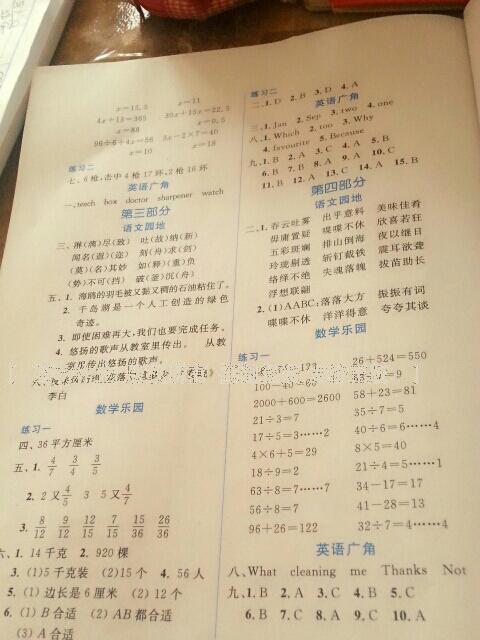 x=15.5 x=11
4x+13=365 30x+15x=22.5
x=88 x=0.5
96÷6+4x=56 3x-2×7=40
x=10 x=18
练习二
七、6枪,击中4枪17环,2枪16环
英语广角
一、teach box doctor sharpener watch
第三部分
语文园地
三、淋(漓)尽(致) 吐(故)纳(新)
闻名(遐)(迩) (刻)舟(求)(剑)
(莫)(名)其妙 如(释)(重)负
(势)不可(挡) 破(釜)沉(舟)
五、1. 海鸥的羽毛被又黏又稠的石油粘住了。
2. 千岛湖是一个人工创造的绿色
奇迹。
3. 即使困难再大,我们也要完成任务。
4. 悠扬的歌声从教室里传出。 从教
室里传出悠扬的歌声。
李白
数学乐园
练习一
四、36平方厘米
五、1. 4/7 3/4 3/5
2. 2又4/5 3 5又4/5
3. 8/12 9/12 12/15 7/15 15/36 26/36
六、1. 14千克 2. 920棵
3. (1)5千克装 (2)15个 4. 56人
5. (1)边长是6厘米 (2)12个
6. (1)B合适 (2)AB都合适
(3)A合适
练习二
二、1. D 2. B 3. D 4. A
英语广角
三、1. Jan 2. Sep 3. two 4. one
八、1. Which 2. too 3. Why
4. favourite 5. Because
九、1. B 2. A 3. C 4. A 5. C
6. B 7. B 8. A 9. A 10. C
11. B 12. A 13. C 14. A 15. B
第四部分
语文园地
二、1. 吞云吐雾 出乎意料 美味佳肴
毋庸置疑 喋喋不休 欣喜若狂
五彩斑斓 排山倒海 夜以继日
玲珑剔透 斩钉截铁 震耳欲聋
络绎不绝 失魂落魄 拔苗助长
浮想联翩
2. (1)AABC:落落大方 振振有词
喋喋不休 洋洋得意 夸夸其谈
数学乐园
练习一
26+524=550
2000+600=2600 58+23=81
21÷3=7 35÷7=5
17÷5=3……2 40÷6=6……4
4×6+5=29 8×5=40
18÷9=2 21÷4=5……1
63÷8=7……7 34-17=17
56÷7=8 41-28=13
96+26=122 32÷7=4……4
英语广角
八、What cleaning me Thanks Not
九、1. B 2. A 3. C 4. B 5. C
6. B 7. B 8. A 9. C 10. A